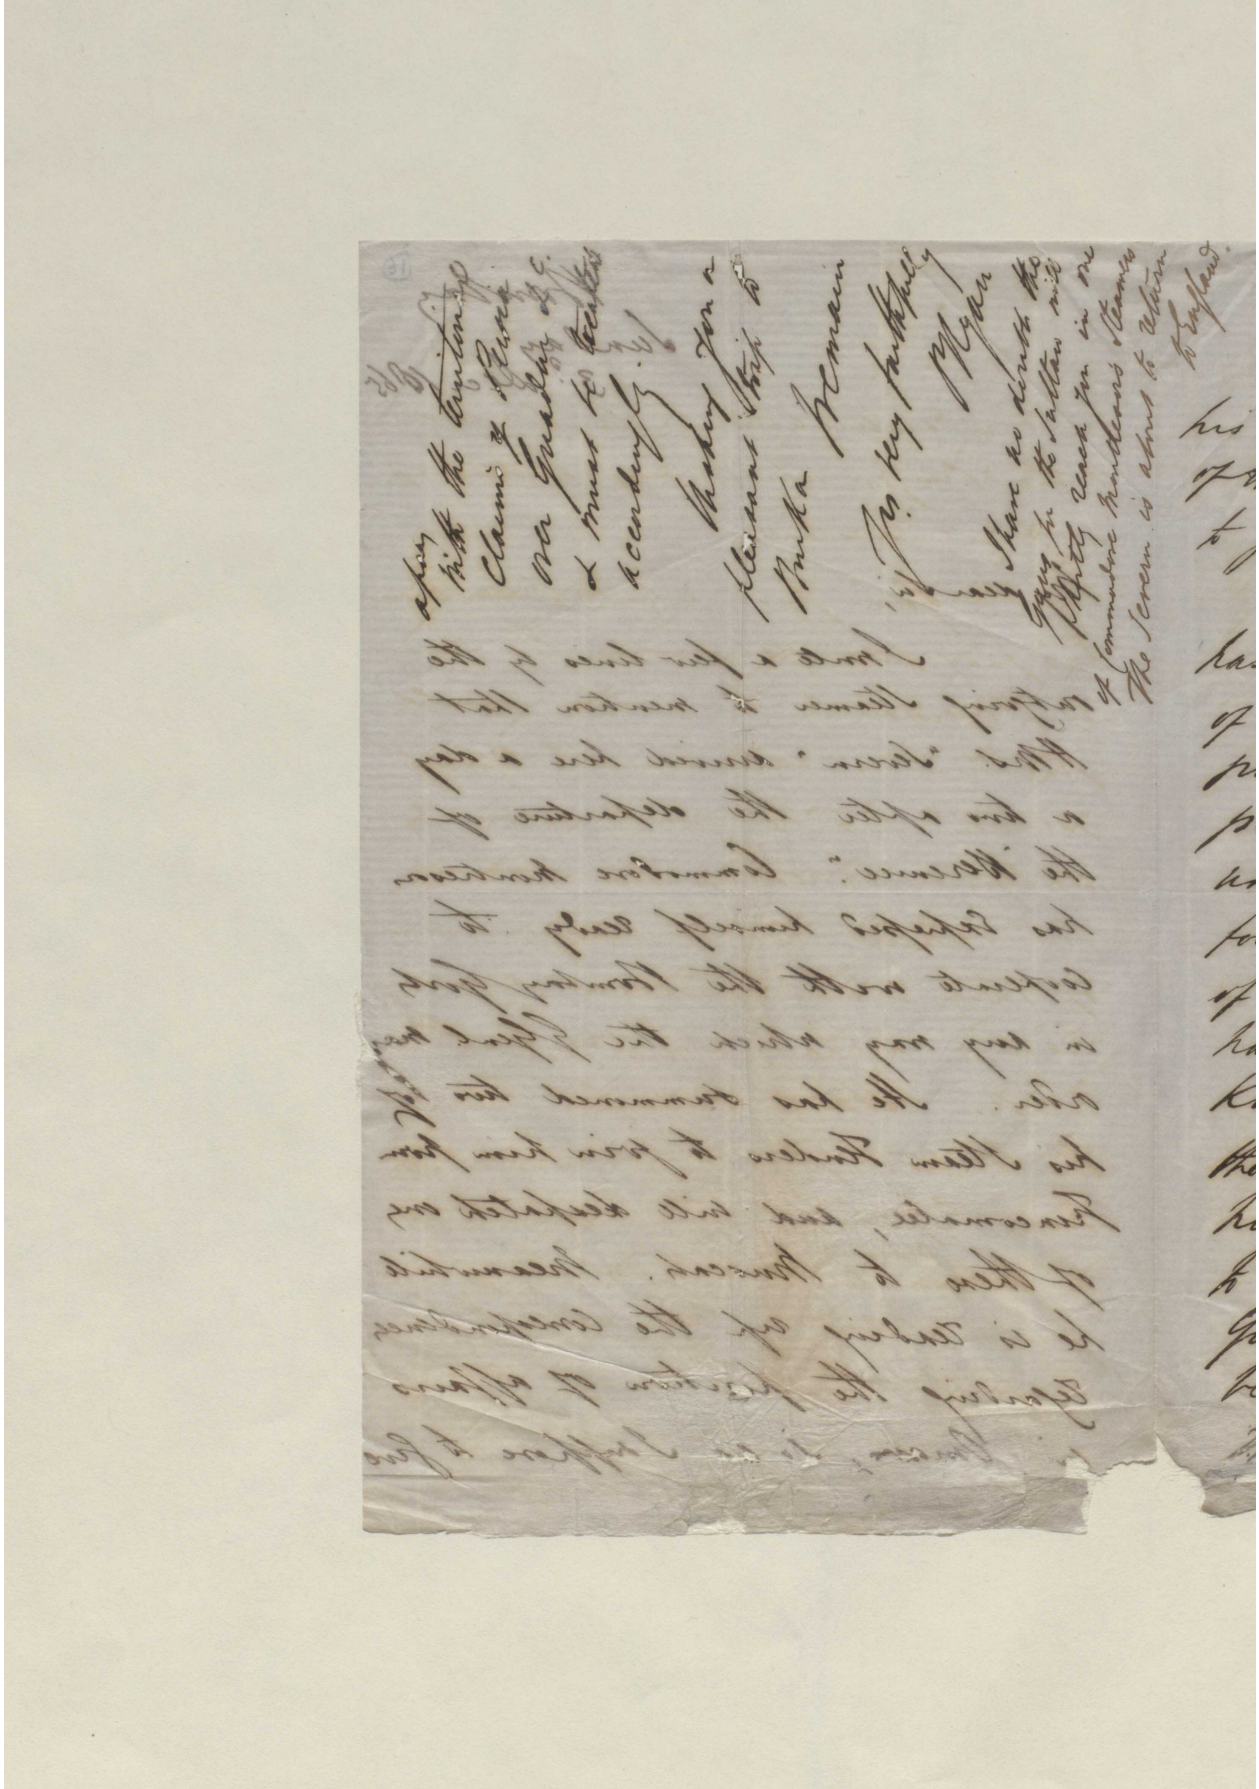 with the territorial
claims of Persia
over Guadur &c.
& must be treated
accordingly.
Wishing you a
pleasant trip to
Burka
I remain
Yrs very faithfully
I have no doubt the
guns for the Sultan will
shortly reach you in one
of Commodore Montresor's steamers
The Severn is about to return
to England.
Dear Sir,
I write a few lines by the
outgoing Steamer to mention that
HMS. "Severn" arrived here a day
or two after the departure of
the "Berenice". Commodore Montresor
has expressed himself ready to
cooperate with the Bombay Govt
in any way which the may
order. He has summoned two of
his Steam Tenders to join him from
Trincomalee, and will despatch one
of them to Muscat. Meanwhile
he is reading up the correspondence
regarding the position of affairs
in so as I suppose to give
his
of
to
has
of
of
to